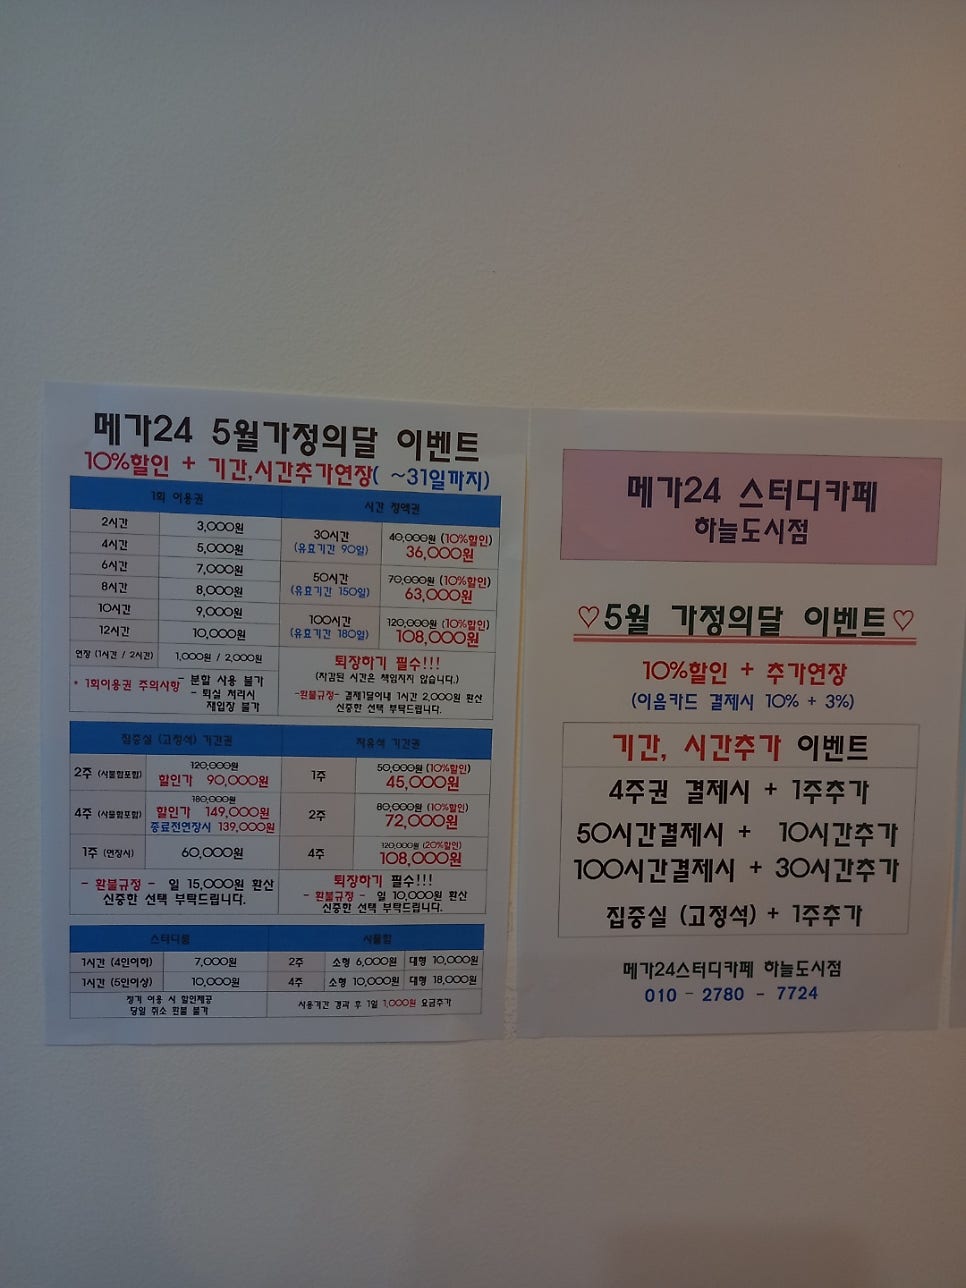 메가24 5월가정의달 이벤트
10%할인 + 기간,시간추가연장( ~31일까지)
1회 이용권
2시간 3,000원
4시간 5,000원
6시간 7,000원
8시간 8,000원
10시간 9,000원
12시간 10,000원
연장 (1시간 / 2시간) 1,000원 / 2,000원
* 1회이용권 주의사항 - 분할 사용 불가
- 퇴실 처리시
재입장 불가
시간 정액권
30시간 40,000원 (10%할인)
(유효기간 90일) 36,000원
50시간 70,000원 (10%할인)
(유효기간 150일) 63,000원
100시간 120,000원 (10%할인)
(유효기간 180일) 108,000원
퇴장하기 필수!!!
(차감된 시간은 책임지지 않습니다.)
-환불규정- 결제1달이내 1시간 2,000원 환산
신중한 선택 부탁드립니다.
집중실 (고정석) 기간권
2주 (사물함포함) 120,000원
할인가 90,000원
4주 (사물함포함) 180,000원
할인가 149,000원
종료전연장시 139,000원
1주 (연장시) 60,000원
- 환불규정 - 일 15,000원 환산
신중한 선택 부탁드립니다.
자유석 기간권
1주 50,000원 (10%할인)
45,000원
2주 80,000원 (10%할인)
72,000원
4주 120,000원 (20%할인)
108,000원
퇴장하기 필수!!!
- 환불규정 - 일 10,000원 환산
신중한 선택 부탁드립니다.
스터디룸
1시간 (4인이하) 7,000원
1시간 (5인이상) 10,000원
장기 이용 시 할인제공
당일 취소 환불 불가
사물함
2주 소형 6,000원 대형 10,000원
4주 소형 10,000원 대형 18,000원
사용기간 경과 후 1일 1,000원 요금추가
메가24 스터디카페
하늘도시점
♡5월 가정의달 이벤트♡
10%할인 + 추가연장
(이음카드 결제시 10% + 3%)
기간, 시간추가 이벤트
4주권 결제시 + 1주추가
50시간결제시 + 10시간추가
100시간결제시 + 30시간추가
집중실 (고정석) + 1주추가
메가24스터디카페 하늘도시점
010 - 2780 - 7724